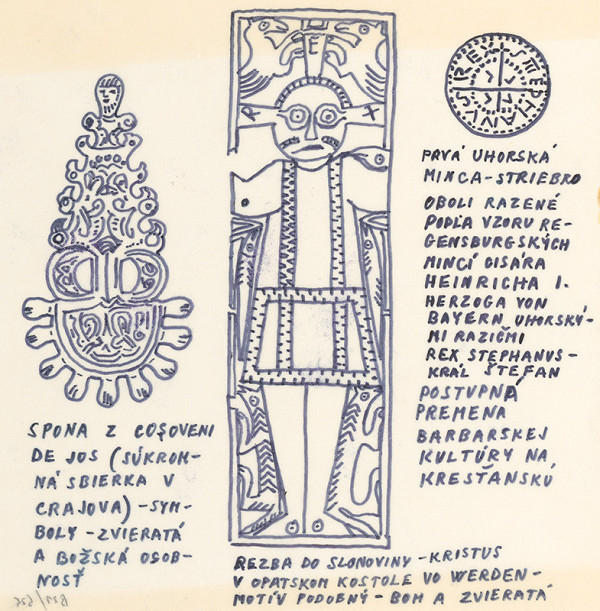 SPONA Z COŞOVENI
DE JOS (SÚKROM-
NÁ SBIERKA V
CRAJOVA) - SYM-
BOLY - ZVIERATÁ
A BOŽSKÁ OSOB-
NOSŤ
E
R X
REZBA DO SLONOVINY - KRISTUS
V OPATSKOM KOSTOLE VO WERDEN -
MOTÍV PODOBNÝ - BOH A ZVIERATÁ
PRVÁ UHORSKÁ
MINCA - STRIEBRO
OBOLI RAZENÉ
PODĽA VZORU RE-
GENSBURGSKÝCH
MINCÍ CISÁRA
HEINRICHA I.
HERZOGA VON
BAYERN UHORSKÝ-
MI RAZIČMI
REX STEPHANUS -
KRÁL ŠTEFAN
POSTUPNÁ
PREMENA
BARBARSKEJ
KULTÚRY NA
KRESŤANSKÚ